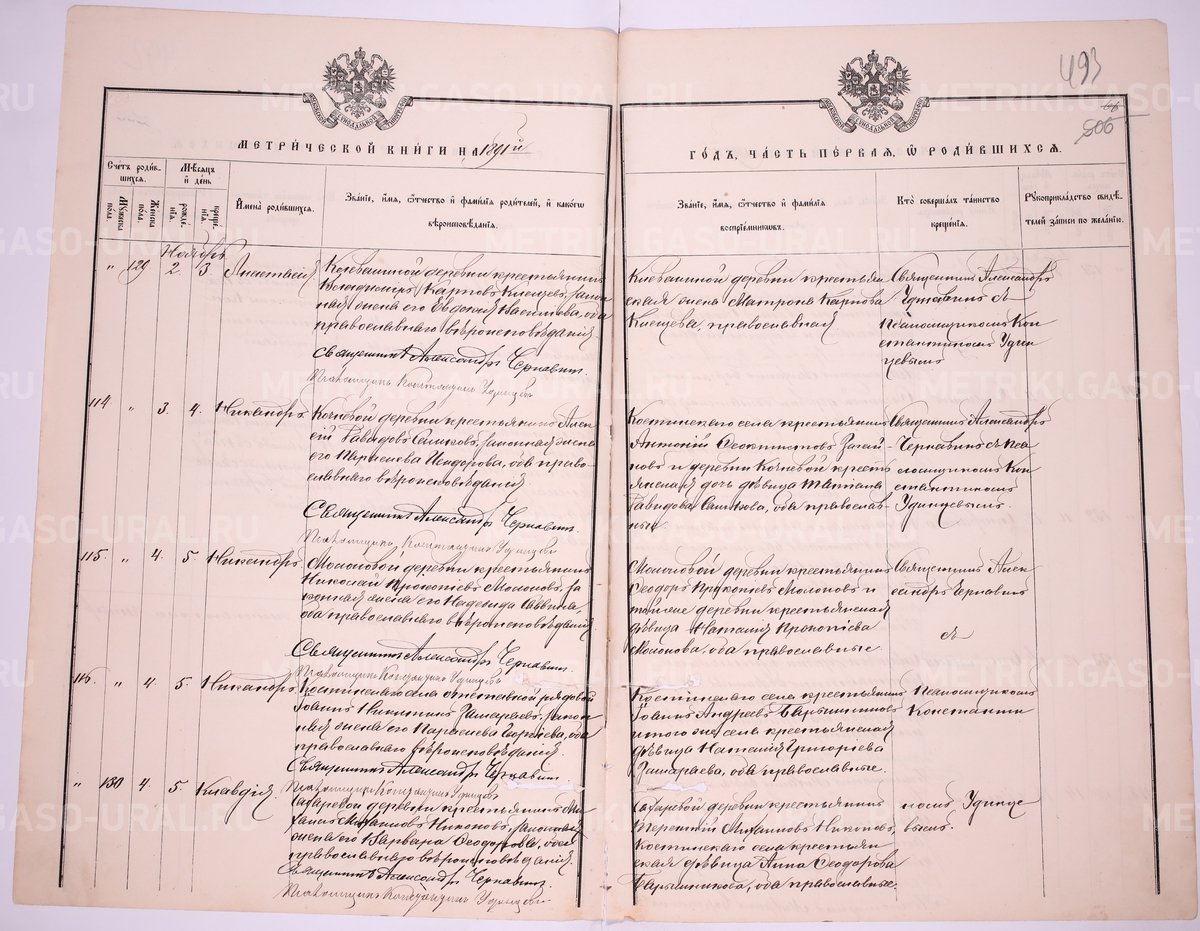 493
606
МЕТРИ́ЧЕСКОЙ КНИ́ГИ НА 1891й
ГО́ДЪ, ЧА́СТЬ ПЕ́РВАЯ, Ѡ РОДИ́ВШИХСЯ.
Сче́тъ роди́в-
шихся.
Му́жеска пола.
Же́нска пола.
Мѣ́сяцъ и҆ де́нь
рожде́-
нїя.
креще́-
нїя.
И҆мена̀ роди́вшихся.
Зва́нїе, и҆́мя, ѻ҆́тчество и҆ фами́лїя роди́телей, и҆ како́гѡ
вѣроисповѣ́данїя.
Зва́нїе, и҆́мя, ѻ҆́тчество и҆ фами́лїя
воспрїе́мниковъ.
Кто̀ соверша́лъ та́инство
креще́нїя.
Рꙋкоприкла́дство свидѣ́-
телей за́писи по жела́нїю.
Ноябрь
" 129 2 3 Анастасія
деревни крестьянинъ
Владиміръ Карповъ Клещевъ, закон
ная жена его Евдокія Васильева, оба
православнаго вѣроисповѣданія
Священникъ Александръ Чернавинъ.
Псаломщикъ Константинъ Удинцевъ
деревни крестьян
ская жена Матрона Карпова
Клещева, православная
Священникъ Александръ
Чернавинъ съ
Псаломщикомъ Кон
стантиномъ Удин
цевымъ
114 " 3. 4. Никандръ
Кочневой деревни крестьянинъ Алек
сѣй Давидовъ, законная жена
его Параскева Исидорова, оба право-
славнаго вѣроисповѣданія
Священникъ Александръ Чернавинъ.
Псаломщикъ Константинъ Удинцевъ
Костинскаго села крестьянинъ
Антоній Феоктистовъ
и деревни Кочневой кресть
янская дочь дѣвица Татіана
Давидова, оба православ-
ные.
Священникъ Александръ
Чернавинъ съ Пса
ломщикомъ Кон
стантиномъ
Удинцевымъ.
115. " 4. 5 Никандръ
Молоковой деревни крестьянинъ
Николай Прокопіевъ Молоковъ, за
конная жена его Надежда Саввина,
оба православнаго вѣроисповѣданія
Священникъ Александръ Чернавинъ.
Псаломщикъ Константинъ Удинцевъ
Молоковой деревни крестьянинъ
Ѳеодоръ Прокопіевъ Молоковъ и
тойже деревни крестьянская
дѣвица Наталія Прокопіева
Молокова, оба православные
Священникъ Алек
сандръ Чернавинъ
съ
116. " 4. 5. Никандръ
Костинскаго села отставной рядовой
Іоаннъ Никитинъ Замараевъ, закон
ная жена его Параскева Георгіева, оба
православнаго вѣроисповѣданія.
Священникъ Александръ Чернавинъ.
Псаломщикъ Константинъ Удинцевъ
Костинскаго села крестьянинъ
Іоаннъ Андреевъ Барышниковъ
и того же села крестьянская
дѣвица Наталія Григоріева
Замараева, оба православные.
Псаломщикомъ
Константи
" 130 4. 5. Клавдія.
деревни крестьянинъ Ми
хаилъ Никоновъ, законная
жена его Варвара Ѳеодорова, оба
православнаго вѣроисповѣданія.
Священникъ Александръ Чернавинъ.
Псаломщикъ Константинъ Удинцевъ
деревни крестьянинъ
Терентій Никоновъ,
Костинскаго села крестьян
ская дѣвица Анна Ѳеодорова
Барышникова, оба православные.
номъ Удинце
вымъ.
METRIKI.GASO-URAL.RU